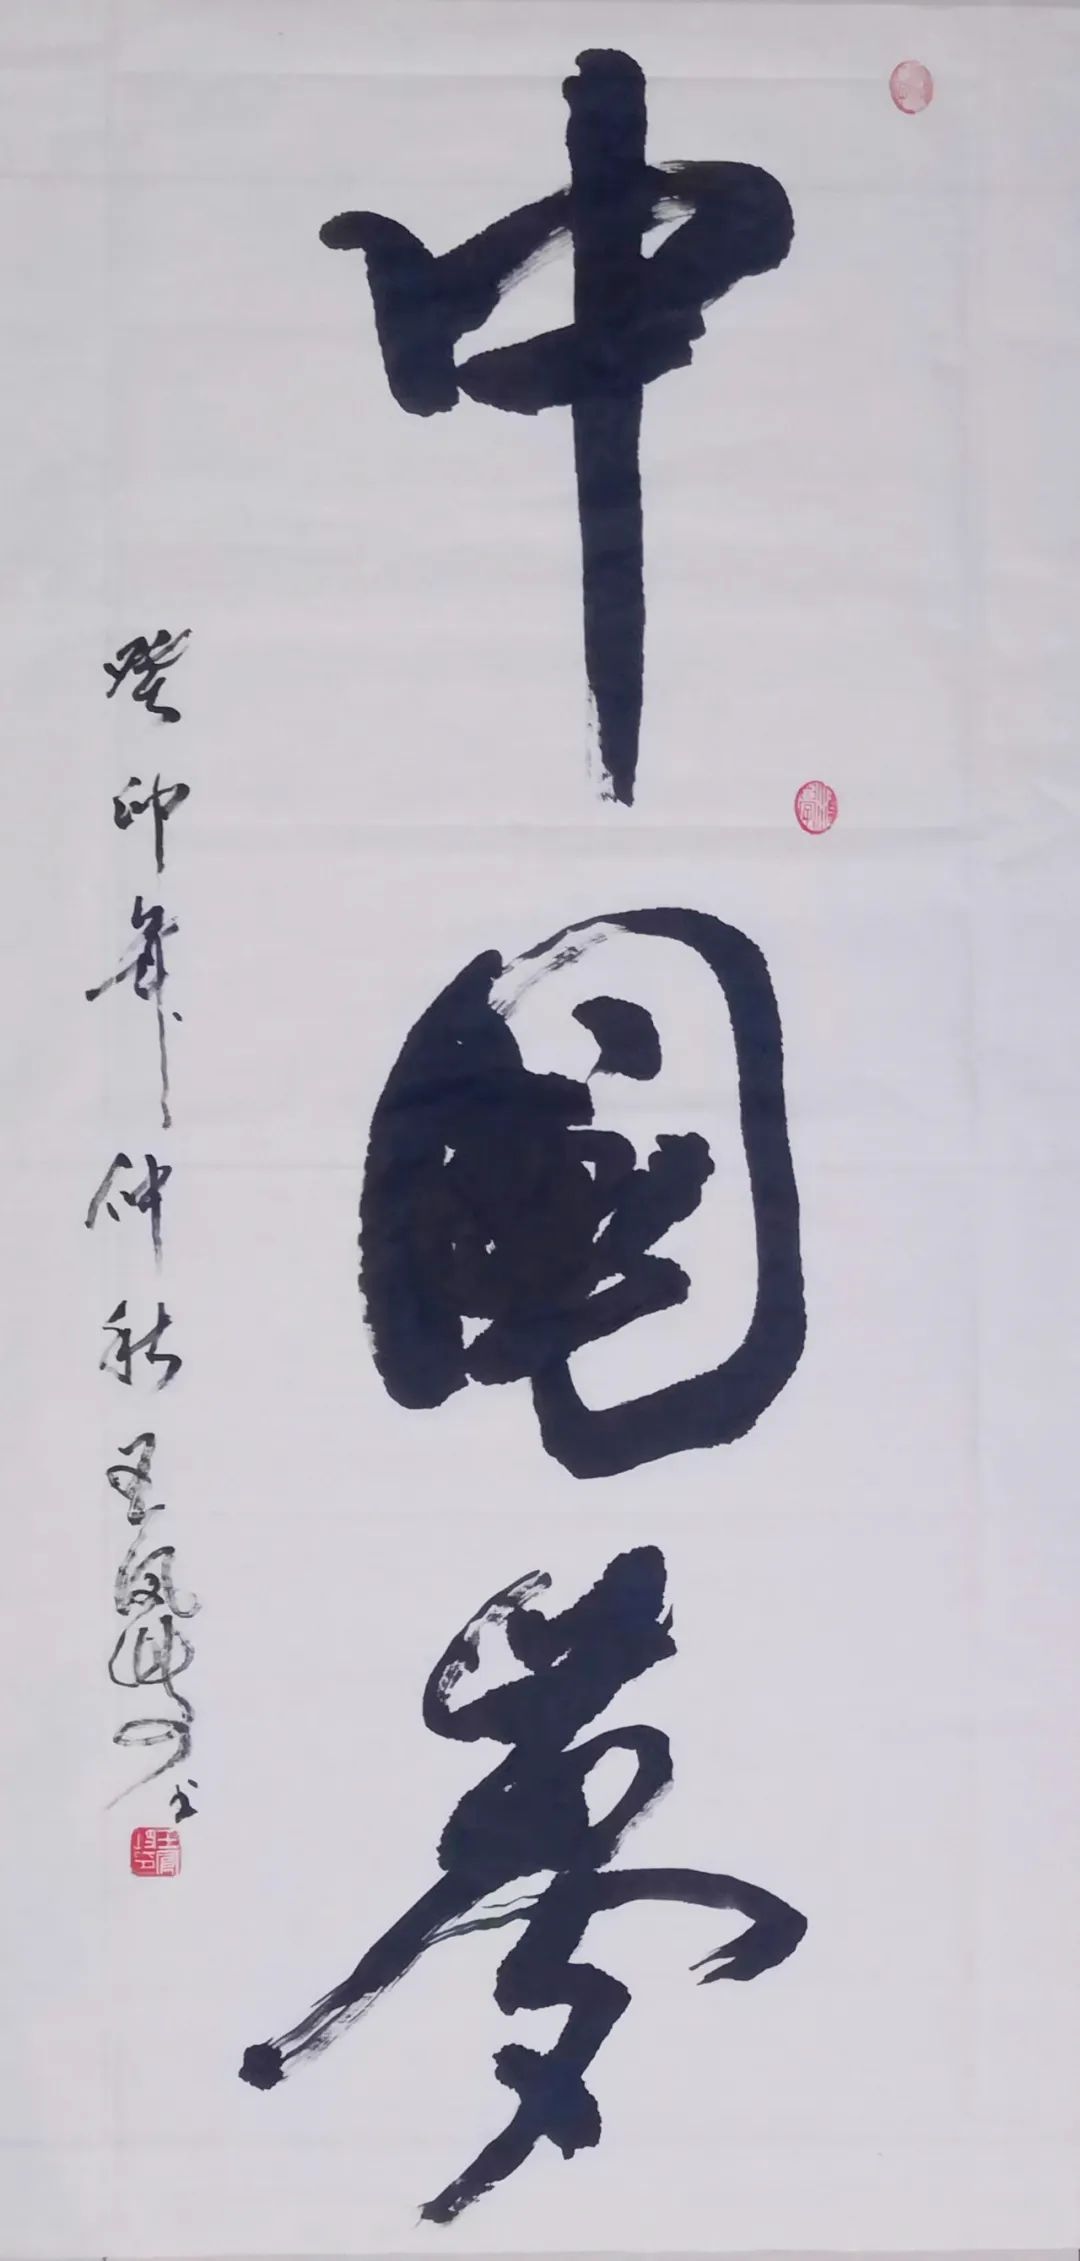 中國夢
癸卯年仲秋王凤